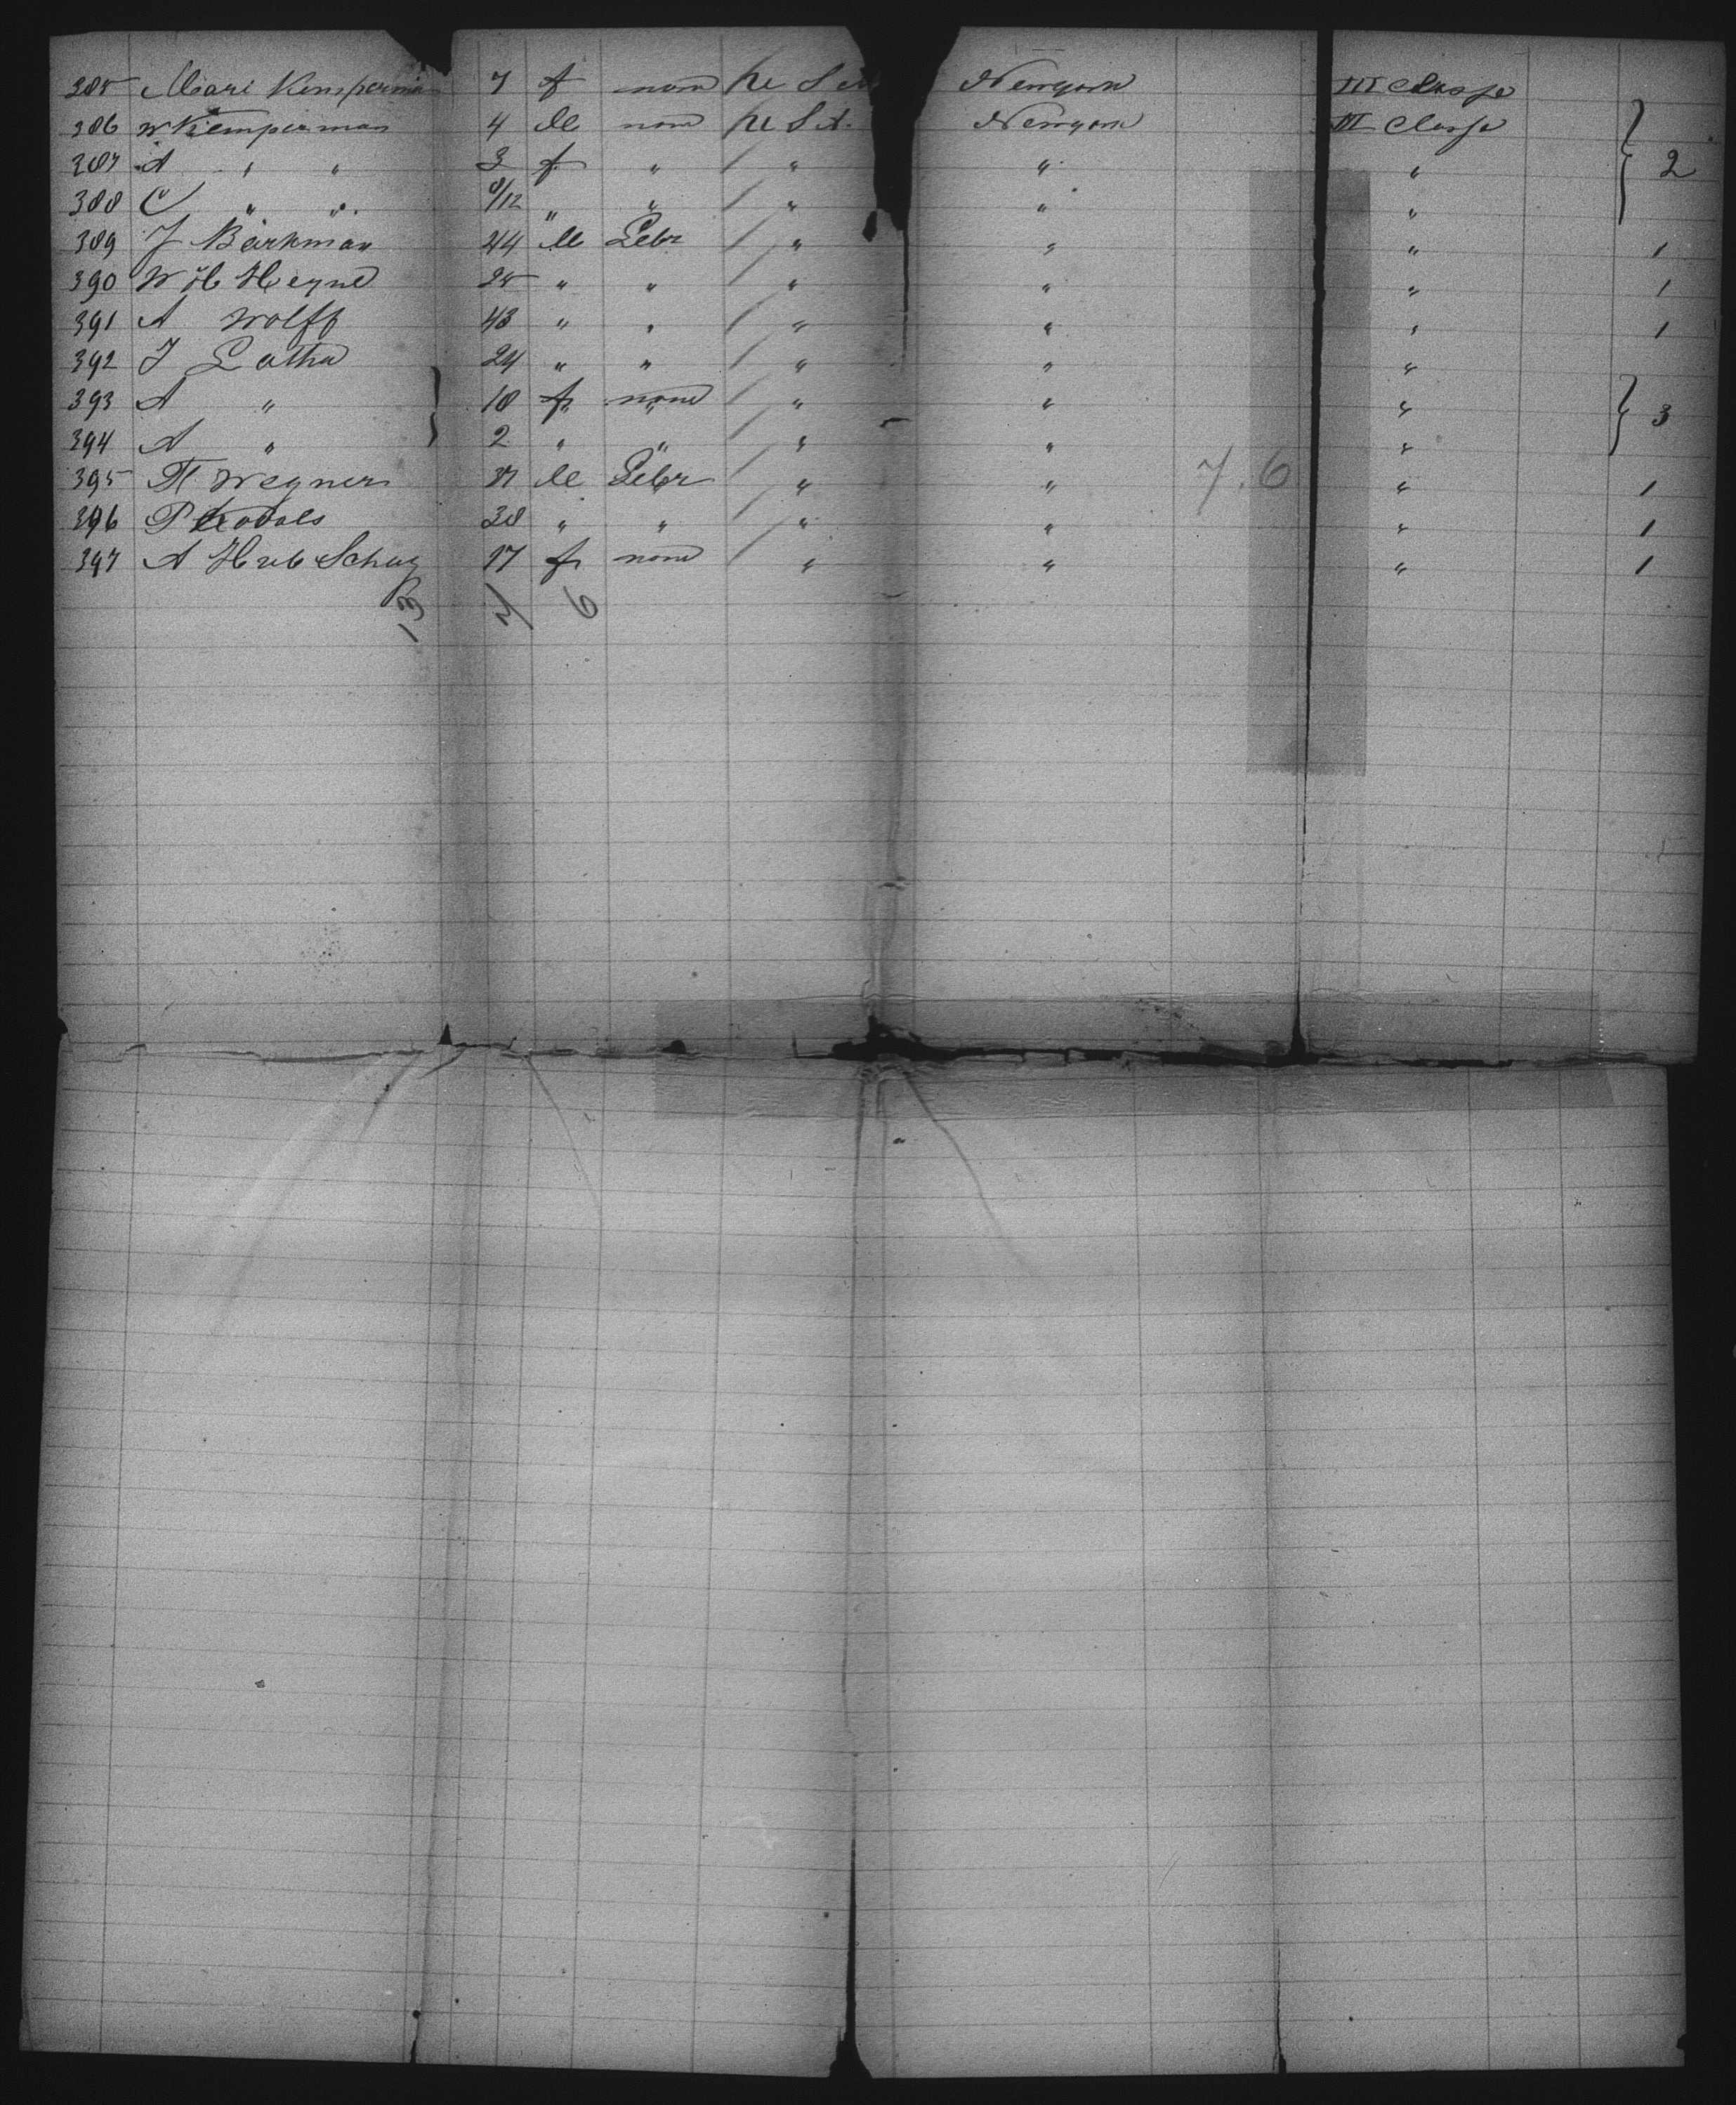 385 Mari Kemperman 7 f none U S A Newyork III Classe
386 W Kemperman 4 M none U S A. Newyork III Classe
387 A " " 3 f " " " " 2
388 C " " 9/12 " " " " "
389 J Barkman 44 M Lebr " " " 1
390 W H Heyne 25 " " " " " 1
391 A Wolff 43 " " " " " 1
392 J Lotha 24 " " " " "
393 A " 18 f none " " " 3
394 A " 2 " " " " "
395 H Wegner M Lebr " " 7.6 " 1
396 P 38 " " " " " 1
397 A 17 f none " " " 1
13 7 6